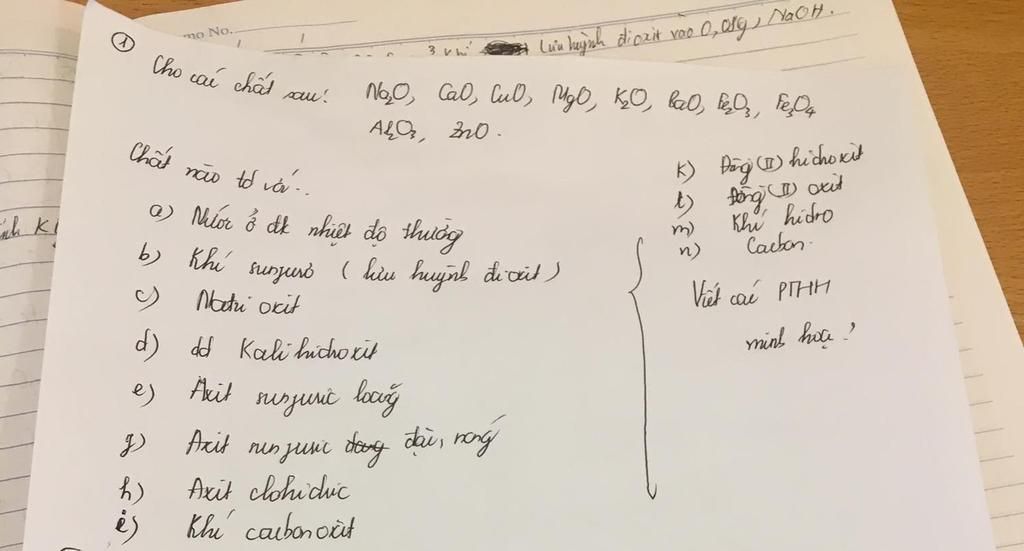 mo No.
3 khí lưu huỳnh đioxit vào O, NaOH.
①
Cho các chất sau! Na₂O, CaO, CuO, MgO, K₂O, BaO, Fe₂O₃, Fe₃O₄
Al₂O₃, ZnO.
Chất nào td với..
a) Nước ở đk nhiệt độ thường
b) Khí sunfurơ (lưu huỳnh đioxit)
c) Natri oxit
d) dd Kali hidroxit
e) Axit sunfuric loãng
g) Axit sunfuric đặc, nóng
h) Axit clohidric
i) Khí cacbon oxit
k) Đồng (II) hidroxit
l) Đồng (II) oxit
m) Khí hidro
n) Cacbon.
Viết các PTHH
minh hoạ!